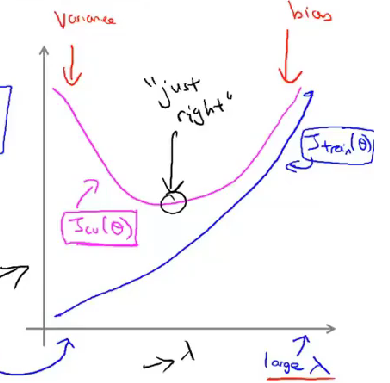 Variance
bias
"just
right"
Jtrain(θ)
Jcv(θ)
→ λ
large λ